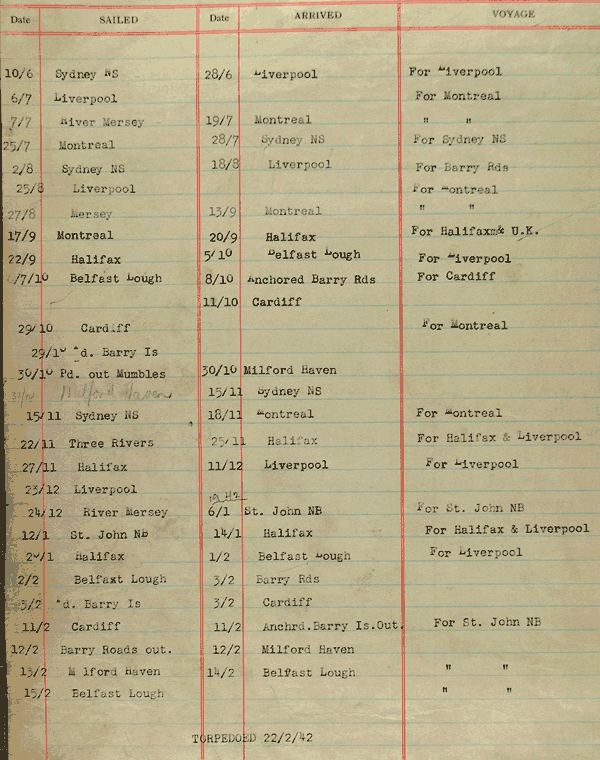 Date SAILED Date ARRIVED VOYAGE
10/6 Sydney NS 28/6 Liverpool For Liverpool
6/7 Liverpool For Montreal
7/7 River Mersey 19/7 Montreal " "
25/7 Montreal 28/7 Sydney NS For Sydney NS
2/8 Sydney NS 18/8 Liverpool For Barry Rds
25/8 Liverpool For Montreal
27/8 Mersey 13/9 Montreal " "
17/9 Montreal 20/9 Halifax For Halifaxm& U.K.
22/9 Halifax 5/10 Belfast Lough For Liverpool
/7/10 Belfast Lough 8/10 Anchored Barry Rds For Cardiff
11/10 Cardiff
29/10 Cardiff For Montreal
29/10 Ad. Barry Is
30/10 Pd. out Mumbles 30/10 Milford Haven
31/10 Milford Haven 15/11 Sydney NS
15/11 Sydney NS 18/11 Montreal For Montreal
22/11 Three Rivers 25/11 Halifax For Halifax & Liverpool
27/11 Halifax 11/12 Liverpool For Liverpool
23/12 Liverpool
24/12 River Mersey 6/1 St. John NB For St. John NB
12/1 St. John NB 14/1 Halifax For Halifax & Liverpool
/1 Halifax 1/2 Belfast Lough For Liverpool
2/2 Belfaxt Lough 3/2 Barry Rds
3/2 Ad. Barry Is 3/2 Cardiff
11/2 Cardiff 11/2 Anchrd.Barry Is.Out. For St. John NB
12/2 Barry Roads out. 12/2 Milford Haven
13/2 M lford Haven 14/2 Belfast Lough " "
15/2 Belfast Lough " "
TORPEDOED 22/2/42